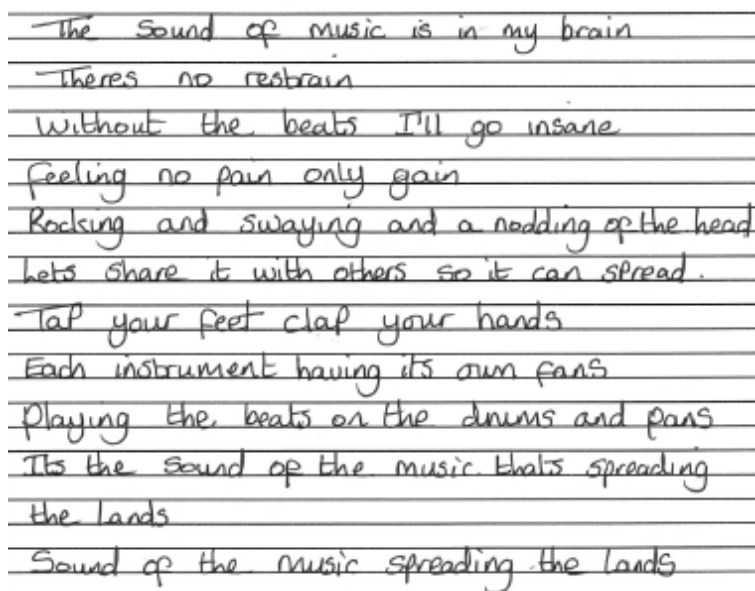 The Sound of music is in my brain
Theres no resbrain
Without the beats I'll go insane
feeling no pain only gain
Rocking and swaying and a nodding of the head
Lets share it with others so it can spread.
Tap your feet clap your hands
Each instrument having its own fans
Playing the beats on the drums and pans
Its the Sound of the music thats spreading
the lands
Sound of the music spreading the lands